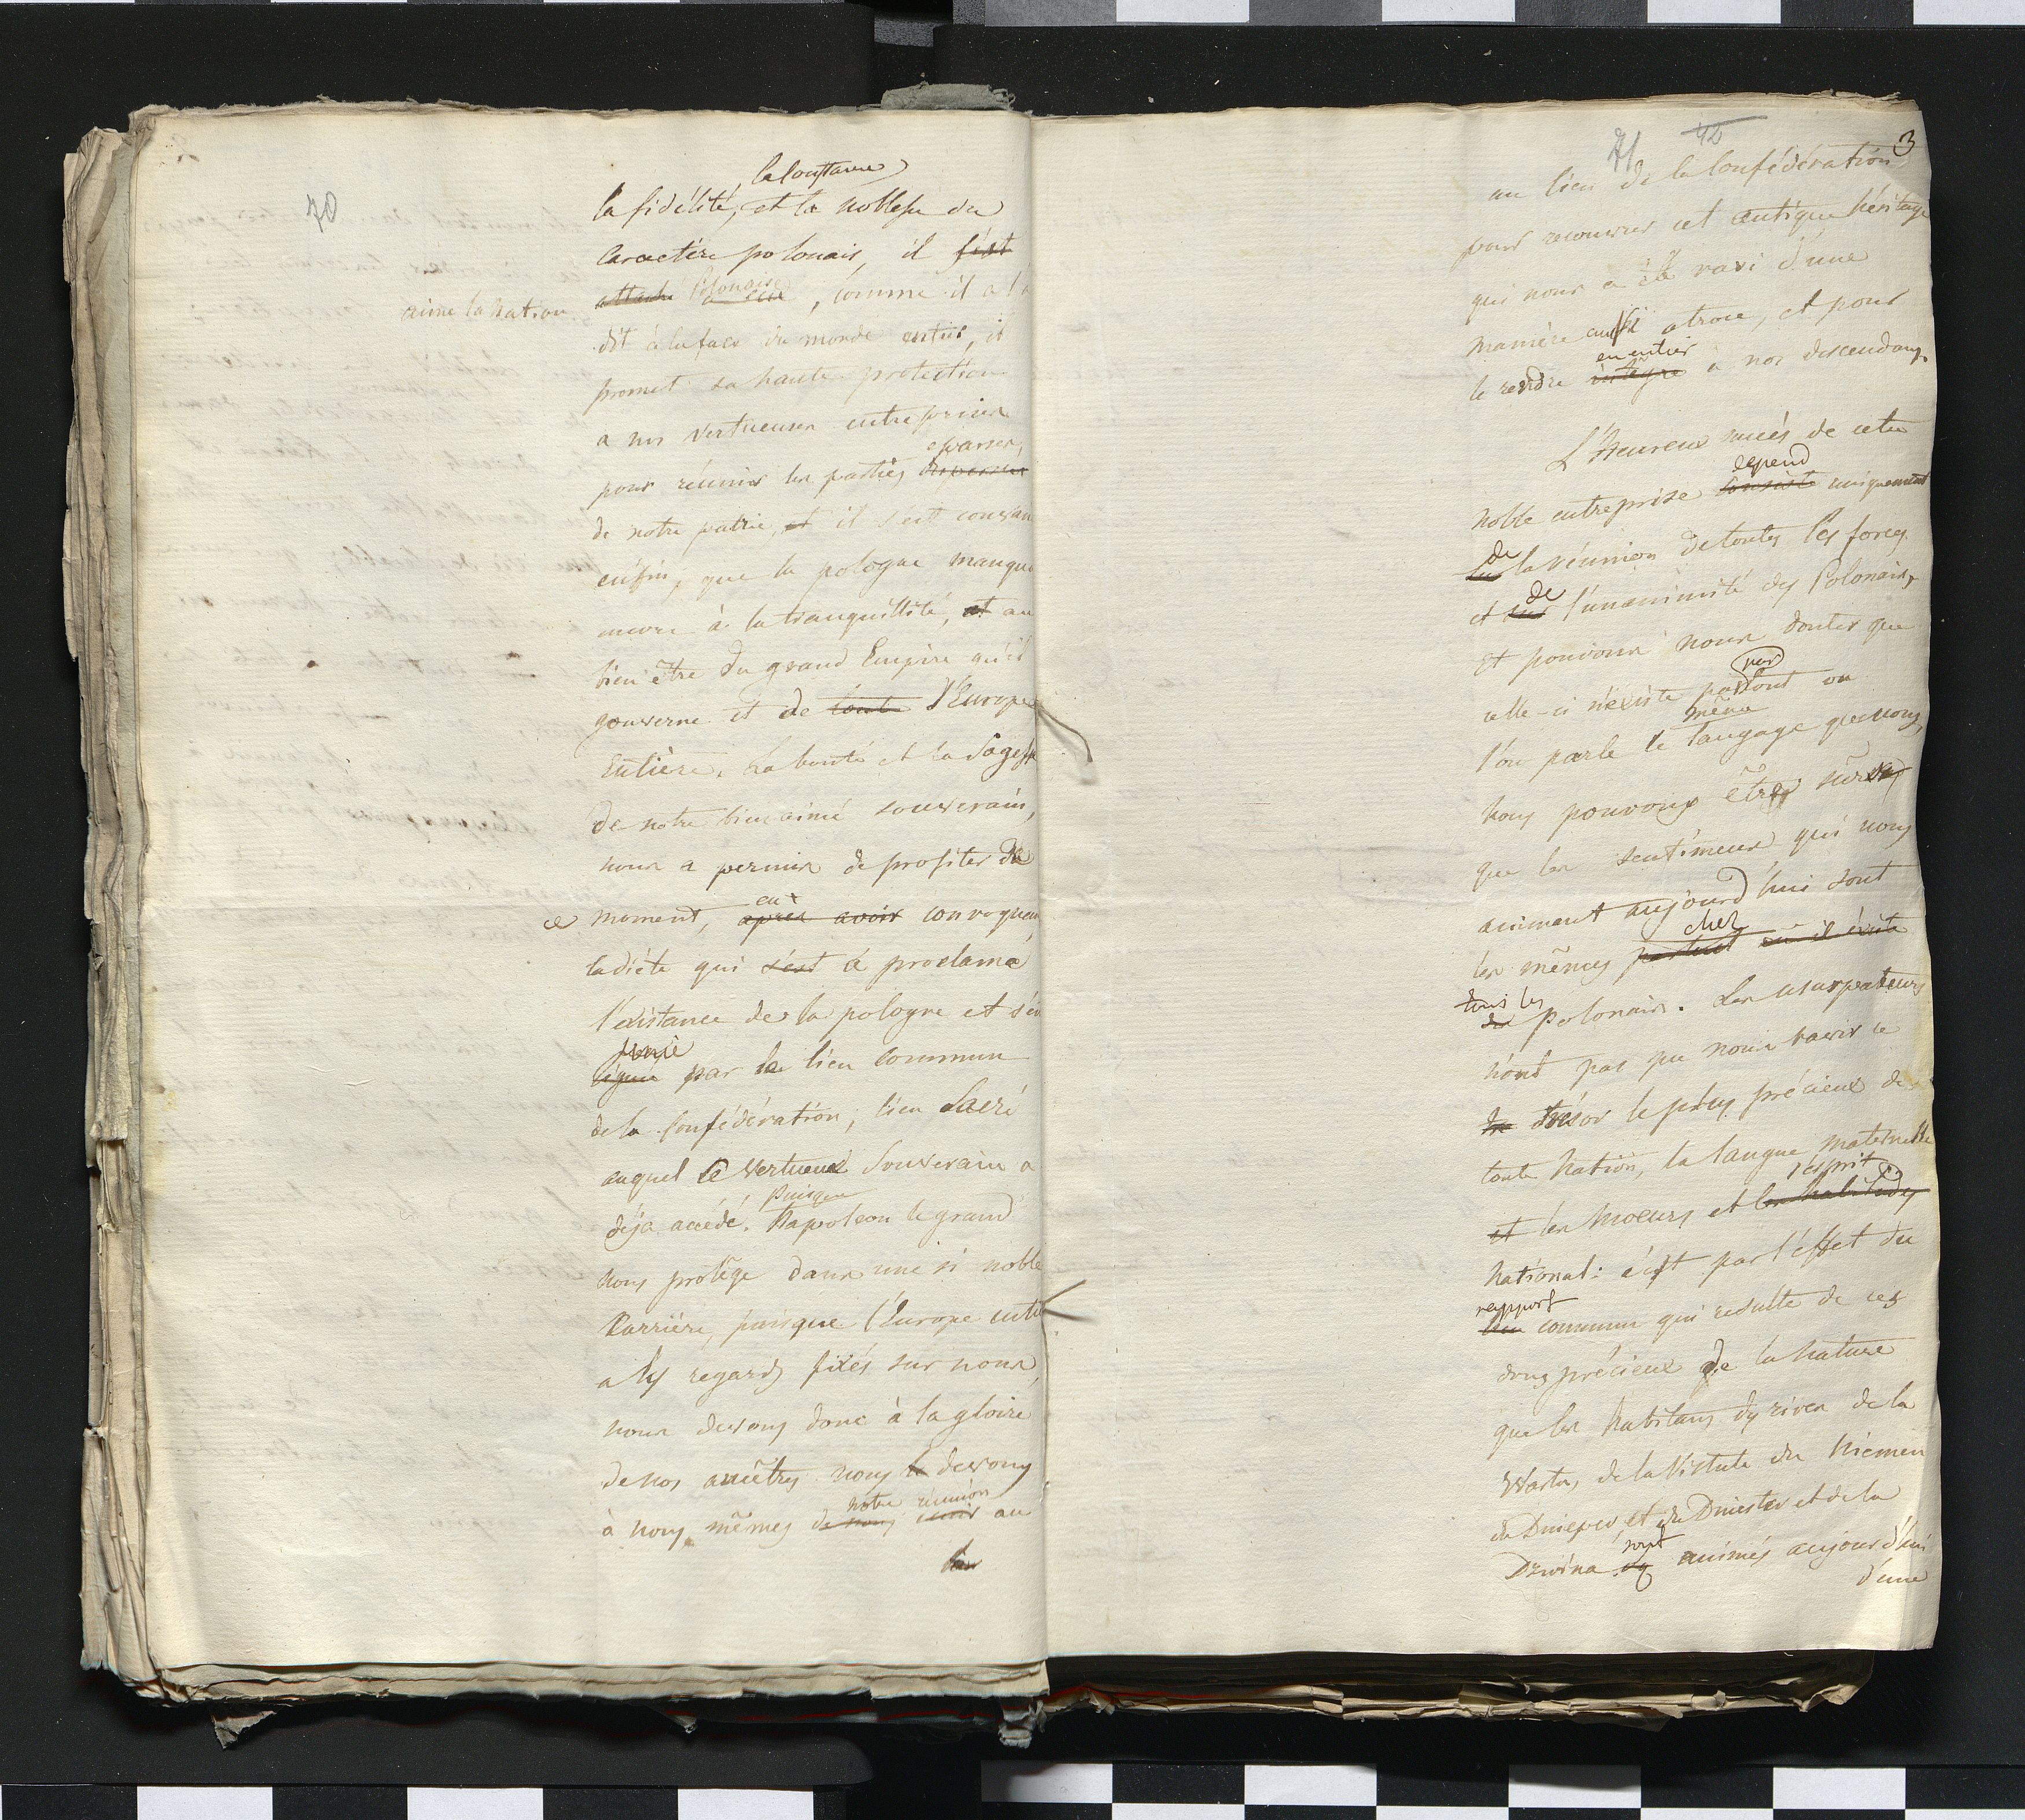 70
la constance
la fidélité, et la noblesse du
caractère polonais, il s'est
aime la nation
attaché Polonaise à eux, comme il a l'a
dit à la face du monde entier, il
promet sa haute protection
a nos vertueuses entreprises
eparses,
pour réunir les parties dispersées
de notre patrie, et il s'est convain
enfin, que la pologne manque
encore à la tranquillité, et au
bien être du grand Empire qu'il
gouverne et de toute l'Europe
Entière. La bonté et la Sagesse
de notre bien aimé souverain,
nous a permis de profiter de
ce moment, après avoir convoquer
la diéte qui s'est à proclamé
l'existance de la pologne et s'é
par le lien commun
de la Confédération, lien Sacré
auquel Le Vertueux Souverain a
Puisque
déja accédé. Napoleon le grand
nous protège dans une si noble
Carrière, puisque l'Europe entie
a les regards fixés sur nous,
nous devons donc à la gloire
de nos ancêtres nous le devons
notre réunion
à nous mêmes de nous unir au
lien
71 42 3
au lien de la Confédération
pour recouvrer cet antique héritage
qui nous a été ravi d'une
manière aussi atroce, et pour
en entier
le rendre intègre à nos descendans.
L'Heureux succés de cette
depend
noble entreprise consiste uniquement
de
sur la réunion de toutes les forces
de
et sur l'unanimité des Polonais,
Et pouvons nous douter que
par
celle-ci n'existe partout ou
même
l'on parle le langage que nous,
nous pouvons être sûrs
que les sentimens qui nous
animent aujourd'hui sont
chez
les mêmes partout où il existe
tous les
des Polonais. Les usurpateurs
n'ont pas pu nous ravir ce
trésor le plus précieux de
toute Nation, la langue maternelle
l'esprit
et les moeurs et les habitudes
National: c'est par l'effet du
rapport
lien commun qui resulte de ces
dons précieux de la Nature
que les habitans des rives de la
Warta, de la Vistule du Niemen
du Dnieper, et du Dniester et de la
sont
Dzwina animés aujourd'hui
d'une